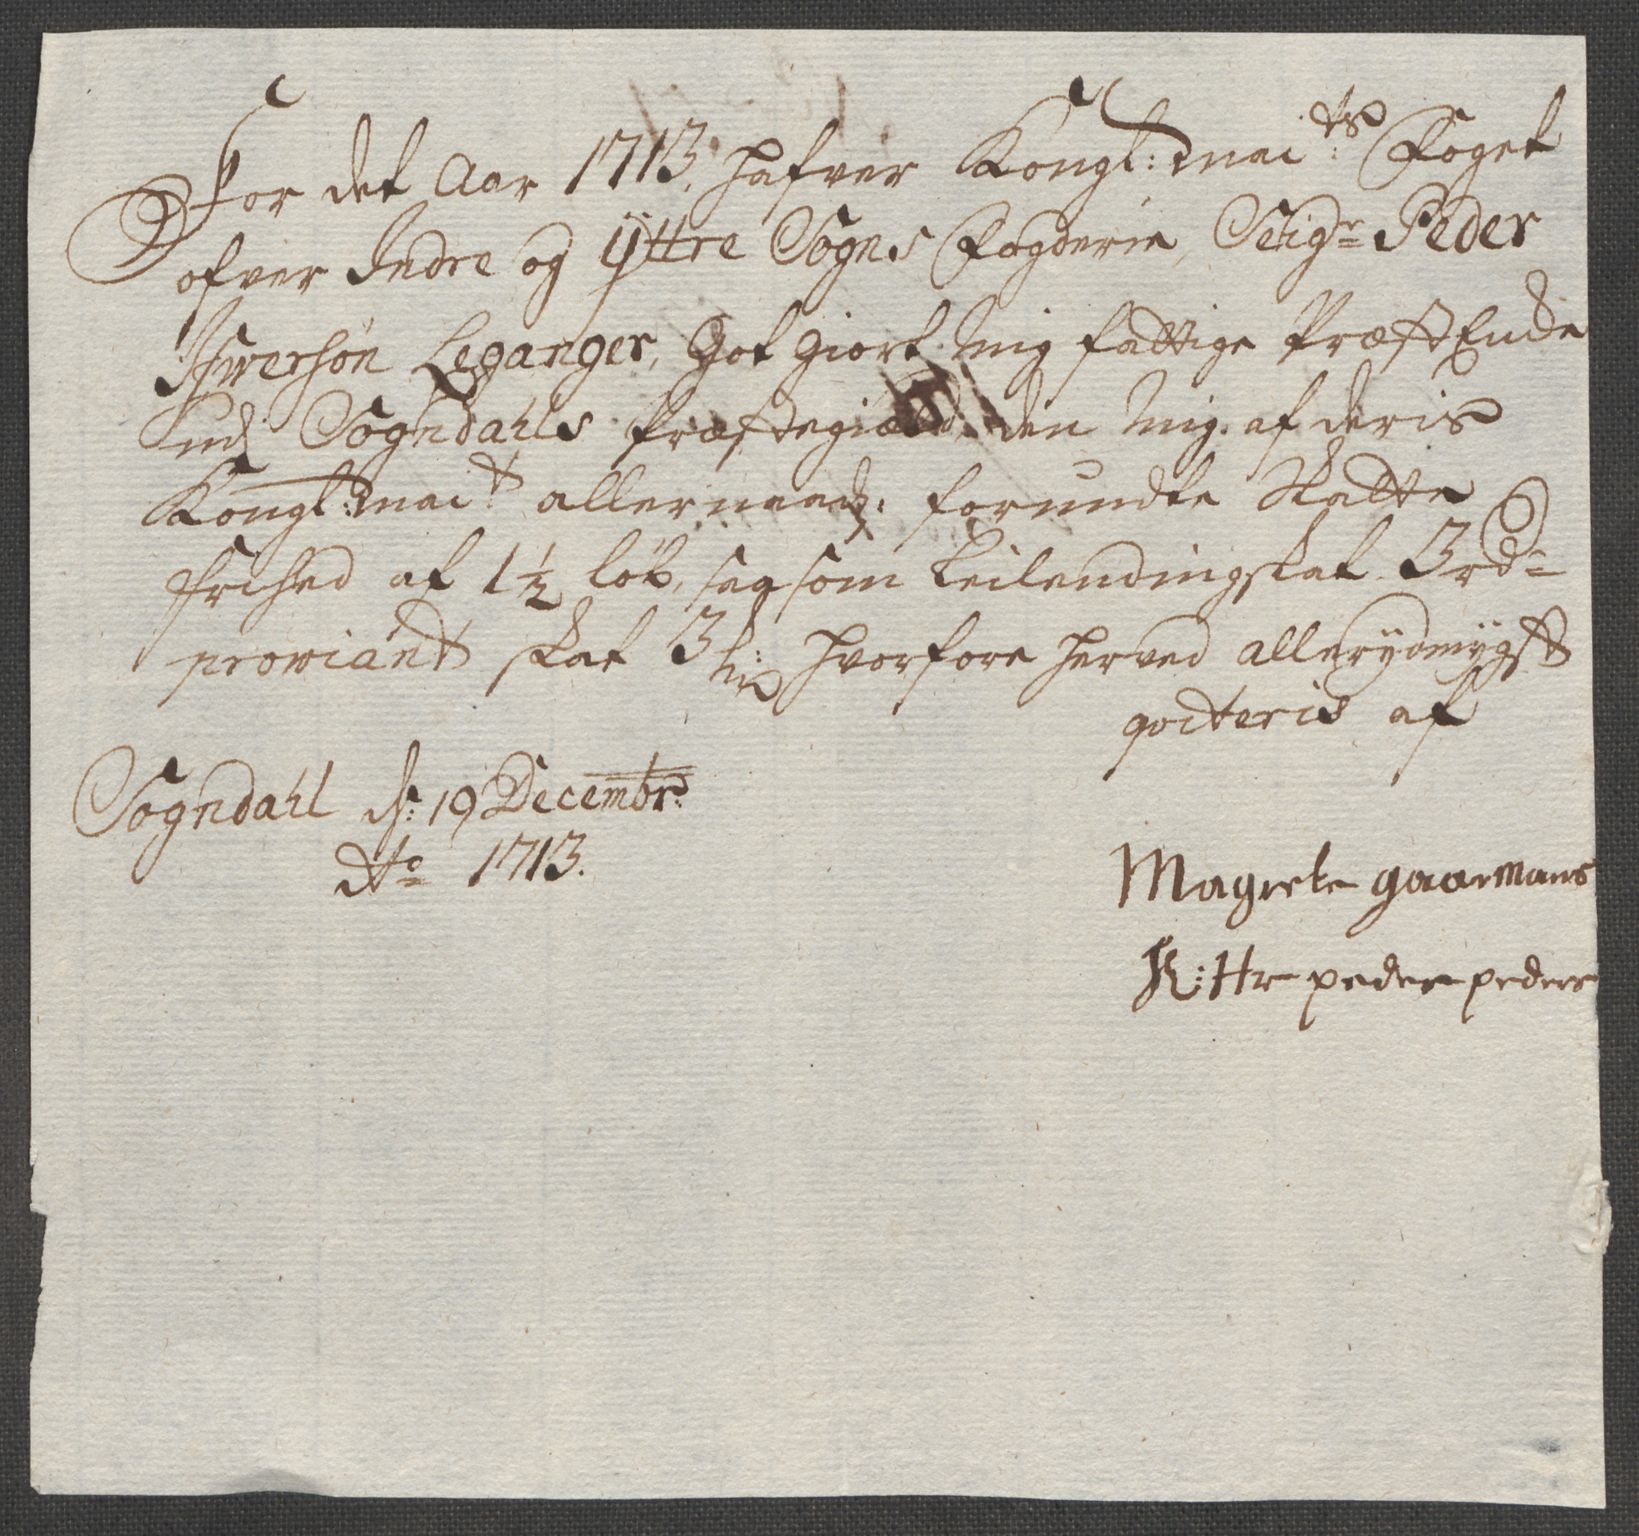 For det Aar 1713, hafver Kongl: maits: Foget
ofver Indre og Ÿttre Sogns Fogderie, Seigr Peder
Ifwersøn Leganger, Got giort mig fattige PræstEnche
udj Sogndahls Præstegield, den mig af deris
Kongl: mait allernaadg: forundte Skatte
frihed af 1½ løb, saa som Leilendingskat 3 rd
prowiant skat 3 Hvorfore herved allerÿdmÿgst
qvitteris af
Sogndahl d: 19 Decembr:
Ao 1713.
Magrete gaarmans
Hr peder peders